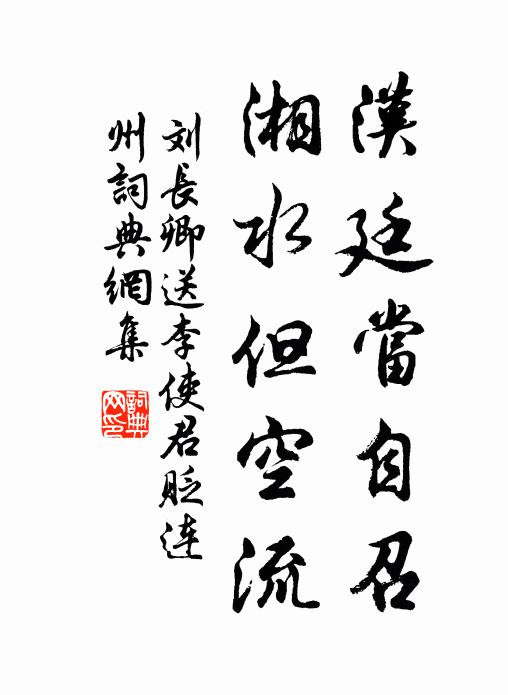 漢廷當自召
湘水但空流
刘長卿送李使君貶連
州詞典網集
詞典
网印